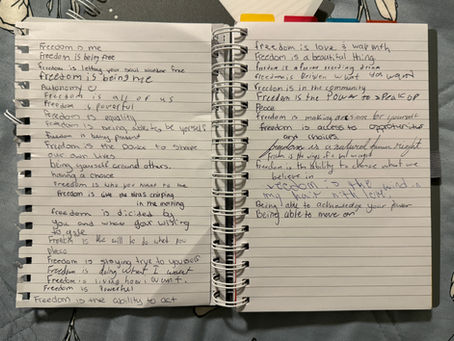 Freedom is me
Freedom is being free
Freedom is letting your soul wander free
freedom is being me
Autonomy
Freedom is all of us
Freedom is powerful
Freedom is equality
Freedom is being able to be yourself
Freedom is being
Freedom is the power to shape
our own lives
being yourself around others.
having a choice
Freedom is who you want to be
Freedom is like the birds chirping
in the morning
freedom is decided by
you and whom your willing
to
Freedom is the will to do what you
please
Freedom is staying true to yourself
Freedom is doing what I want
Freedom is living how I want.
Freedom is Powerful
Freedom is the ability to act
freedom is love & warmth
Freedom is a beautiful thing
Freedom is a
freedom is what you want
freedom is in the community
Freedom is the power to speak up
Peace
Freedom is making decisions for yourself
freedom is access to opportunities
and choices
freedom is a natural human right
freedom is the wings of a bird
Freedom is the ability to choose what we
believe in
freedom is the wind in
my hair
Being able to acknowledge your power
Being able to move on